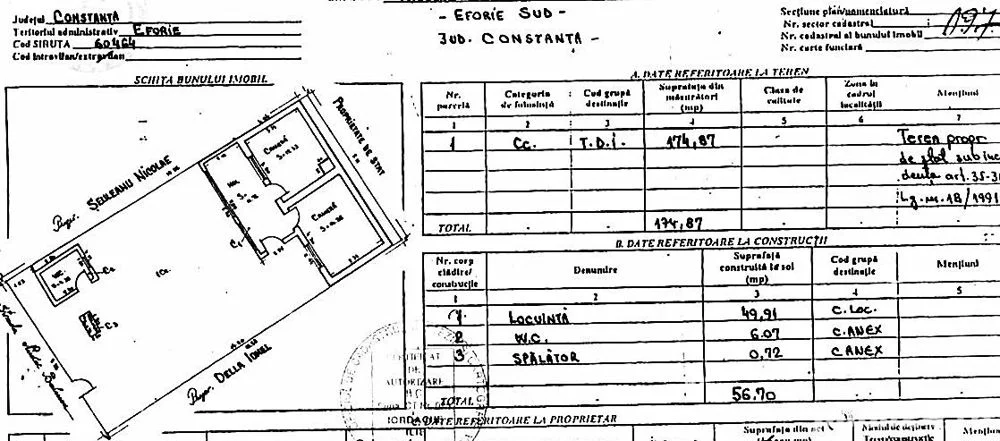 Județul CONSTANȚA
Teritoriul administrativ EFORIE
Cod SIRUTA 60464
Cod intravilan/extravilan
- EFORIE SUD -
JUD. CONSTANȚA -
Secțiune plan/nomenclatură
Nr. sector cadastral
Nr. cadastral al bunului imobil
Nr. carte funciară
SCHIȚA BUNULUI IMOBIL
PROPRIETATE DE STAT
CAMERĂ
HOL
CAMERĂ
Propr. ȘEILEANU NICOLAE
C1
WC
C2
1Cc.
C3
Propr. DELLA IONEL
CERTIFICAT
DE
AUTORIZARE
A. DATE REFERITOARE LA TEREN
Nr. parcelă
Categoria de folosință
Cod grupă destinație
Suprafața din măsurători (mp)
Clasa de calitate
Zona în cadrul localității
Mențiuni
1 2 3 4 5 6 7
1 Cc. T.D.I. 174,87 - - Teren propr.
de stat sub inc
dența art. 35-36
Lg. nr. 18/1991
TOTAL - - 174,87 - -
B. DATE REFERITOARE LA CONSTRUCȚII
Nr. corp clădire/ construcție
Denumire
Suprafață construită la sol (mp)
Cod grupă destinație
Mențiuni
1 2 3 4 5
1. LOCUINȚĂ 49,91 C.LOC.
2 W.C. 6.07 C.ANEX
3 SPĂLĂTOR 0,72 C ANEX
TOTAL 56.70
C. DATE REFERITOARE LA PROPRIETAR
Suprafața din act
Modul de deținere
Mențiuni